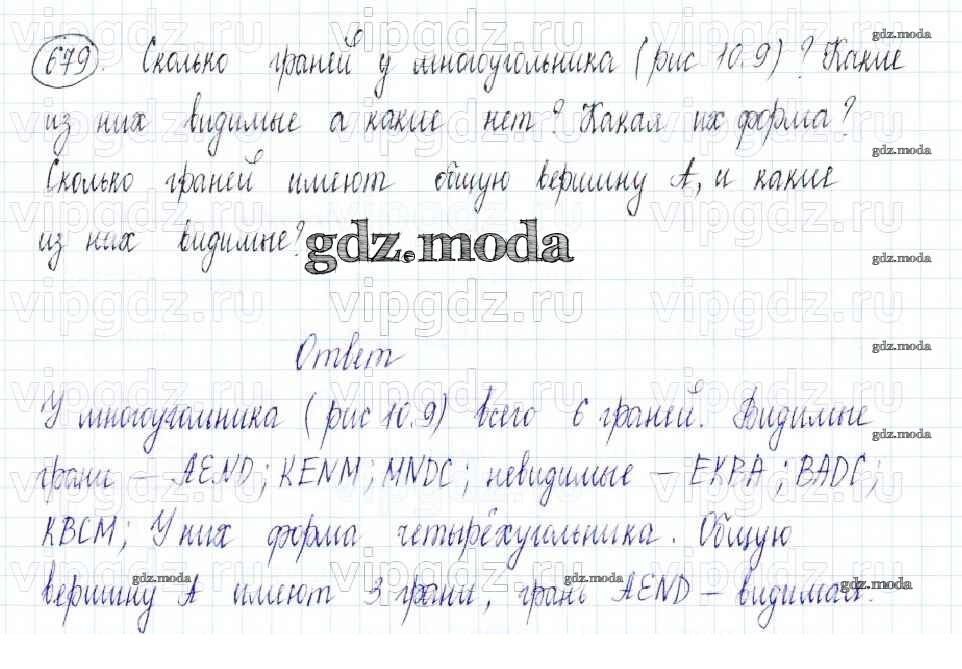 679. Сколько граней у многоугольника (рис 10.9)? Какие
из них видимые а какие нет? Какая их форма?
Сколько граней имеют общую вершину A, и какие
из них видимые?
gdz.moda
Ответ
У многоугольника (рис 10.9) всего 6 граней. Видимые
грани — AEND; KENM; MNDC; невидимые — EKBA; BADC;
KBCM; У них форма четырёхугольника. Общую
вершину A имеют 3 грани, грань AEND — видимая.